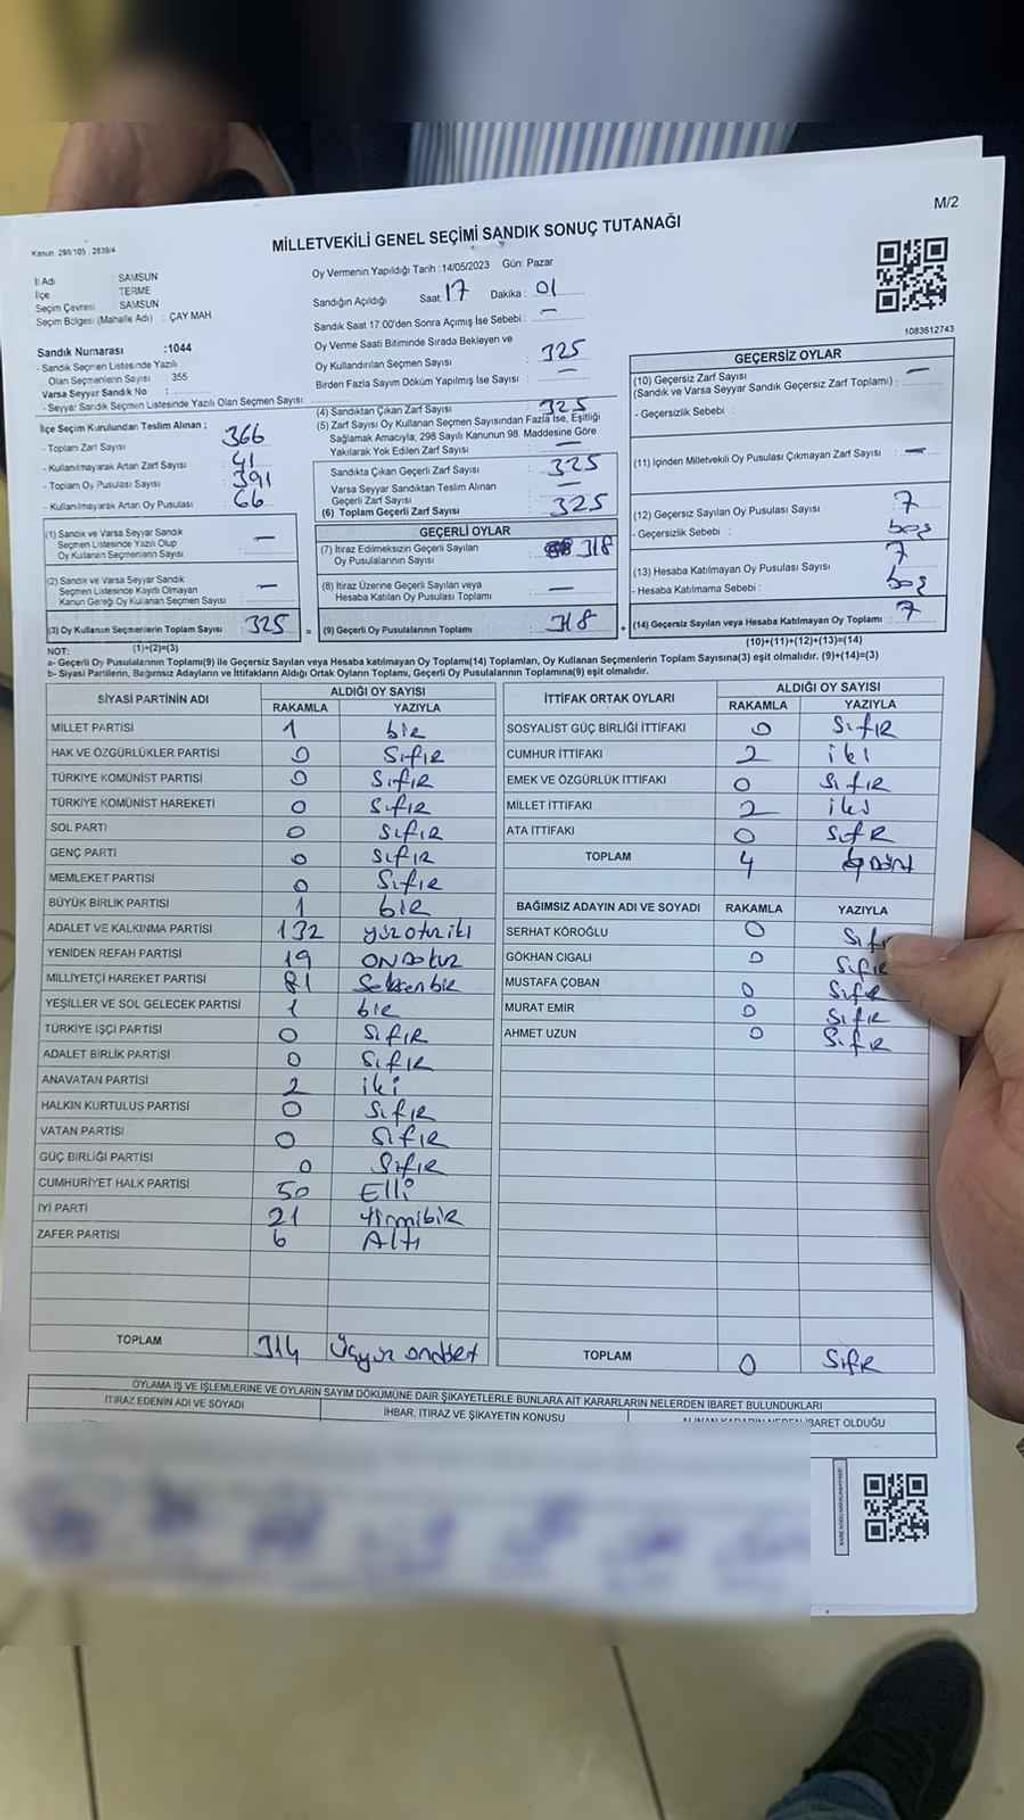 M/2
Kanun: 298/105 : 2839/4
MİLLETVEKİLİ GENEL SEÇİMİ SANDIK SONUÇ TUTANAĞI
İl Adı : SAMSUN
İlçe : TERME
Seçim Çevresi : SAMSUN
Seçim Bölgesi (Mahalle Adı) : ÇAY MAH
Sandık Numarası :1044
- Sandık Seçmen Listesinde Yazılı
Olan Seçmenlerin Sayısı : 355
Varsa Seyyar Sandık No :
- Seyyar Sandık Seçmen Listesinde Yazılı Olan Seçmen Sayısı :
İlçe Seçim Kurulundan Teslim Alınan :
- Toplam Zarf Sayısı 366
- Kullanılmayarak Artan Zarf Sayısı 41
- Toplam Oy Pusulası Sayısı 391
- Kullanılmayarak Artan Oy Pusulası 66
(1) Sandık ve Varsa Seyyar Sandık
Seçmen Listesinde Yazılı Olup
Oy Kullanan Seçmenlerin Sayısı —
(2) Sandık ve Varsa Seyyar Sandık
Seçmen Listesinde Kayıtlı Olmayan
Kanun Gereği Oy Kullanan Seçmen Sayısı —
(3) Oy Kullanan Seçmenlerin Toplam Sayısı 325
(1)+(2)=(3)
Oy Vermenin Yapıldığı Tarih :14/05/2023 Gün: Pazar
Sandığın Açıldığı Saat: 17 Dakika : 01
Sandık Saat 17.00'den Sonra Açımış İse Sebebi : —
Oy Verme Saati Bitiminde Sırada Bekleyen ve
Oy Kullandırılan Seçmen Sayısı : 325
Birden Fazla Sayım Döküm Yapılmış İse Sayısı : —
(4) Sandıktan Çıkan Zarf Sayısı : 325
(5) Zarf Sayısı Oy Kullanan Seçmen Sayısından Fazla İse, Eşitliği
Sağlamak Amacıyla, 298 Sayılı Kanunun 98. Maddesine Göre
Yakılarak Yok Edilen Zarf Sayısı : —
Sandıkta Çıkan Geçerli Zarf Sayısı : 325
Varsa Seyyar Sandıktan Teslim Alınan
Geçerli Zarf Sayısı : —
(6) Toplam Geçerli Zarf Sayısı : 325
GEÇERLİ OYLAR
(7) İtiraz Edilmeksizin Geçerli Sayılan
Oy Pusulalarının Sayısı : 318
(8) İtiraz Üzerine Geçerli Sayılan veya
Hesaba Katılan Oy Pusulası Toplamı : —
= (9) Geçerli Oy Pusulalarının Toplamı : 318 +
1083612743
GEÇERSİZ OYLAR
(10) Geçersiz Zarf Sayısı
(Sandık ve Varsa Seyyar Sandık Geçersiz Zarf Toplamı) : —
- Geçersizlik Sebebi :
(11) İçinden Milletvekili Oy Pusulası Çıkmayan Zarf Sayısı : —
(12) Geçersiz Sayılan Oy Pusulası Sayısı : 7
- Geçersizlik Sebebi : boş
(13) Hesaba Katılmayan Oy Pusulası Sayısı : 7
- Hesaba Katılmama Sebebi : boş
(14) Geçersiz Sayılan veya Hesaba Katılmayan Oy Toplamı : 7
(10)+(11)+(12)+(13)=(14)
NOT:
a- Geçerli Oy Pusulalarının Toplamı(9) ile Geçersiz Sayılan veya Hesaba katılmayan Oy Toplamı(14) Toplamları, Oy Kullanan Seçmenlerin Toplam Sayısına(3) eşit olmalıdır. (9)+(14)=(3)
b- Siyasi Partilerin, Bağımsız Adayların ve İttifakların Aldığı Ortak Oyların Toplamı, Geçerli Oy Pusulalarının Toplamına(9) eşit olmalıdır.
SİYASİ PARTİNİN ADI ALDIĞI OY SAYISI
RAKAMLA YAZIYLA
MİLLET PARTİSİ 1 bir
HAK VE ÖZGÜRLÜKLER PARTİSİ 0 Sıfır
TÜRKİYE KOMÜNİST PARTİSİ 0 Sıfır
TÜRKİYE KOMÜNİST HAREKETİ 0 Sıfır
SOL PARTİ 0 Sıfır
GENÇ PARTİ 0 Sıfır
MEMLEKET PARTİSİ 0 Sıfır
BÜYÜK BİRLİK PARTİSİ 1 bir
ADALET VE KALKINMA PARTİSİ 132 yüzotuziki
YENİDEN REFAH PARTİSİ 19 ONDokuz
MİLLİYETÇİ HAREKET PARTİSİ 81 Seksenbir
YEŞİLLER VE SOL GELECEK PARTİSİ 1 bir
TÜRKİYE İŞÇİ PARTİSİ 0 Sıfır
ADALET BİRLİK PARTİSİ 0 Sıfır
ANAVATAN PARTİSİ 2 iki
HALKIN KURTULUS PARTİSİ 0 Sıfır
VATAN PARTİSİ 0 Sıfır
GÜÇ BİRLİĞİ PARTİSİ 0 Sıfır
CUMHURİYET HALK PARTİSİ 50 Elli
İYİ PARTİ 21 Yirmibir
ZAFER PARTİSİ 6 Altı
TOPLAM 314 Üçyüz ondört
İTTİFAK ORTAK OYLARI ALDIĞI OY SAYISI
RAKAMLA YAZIYLA
SOSYALIST GÜÇ BİRLİĞİ İTTİFAKI 0 Sıfır
CUMHUR İTTİFAKI 2 iki
EMEK VE ÖZGÜRLÜK İTTİFAKI 0 Sıfır
MİLLET İTTİFAKI 2 iki
ATA İTTİFAKI 0 Sıfır
TOPLAM 4 dört
BAĞIMSIZ ADAYIN ADI VE SOYADI RAKAMLA YAZIYLA
SERHAT KÖROĞLU 0 Sıfır
GÖKHAN CIGALI 0 Sıfır
MUSTAFA ÇOBAN 0 Sıfır
MURAT EMİR 0 Sıfır
AHMET UZUN 0 Sıfır
TOPLAM 0 Sıfır
OYLAMA İŞ VE İŞLEMLERİNE VE OYLARIN SAYIM DÖKÜMÜNE DAİR ŞİKAYETLERLE BUNLARA AİT KARARLARIN NELERDEN İBARET BULUNDUKLARI
İTİRAZ EDENİN ADI VE SOYADI İHBAR, İTİRAZ VE ŞİKAYETİN KONUSU ALINAN KARARIN NEDEN İBARET OLDUĞU